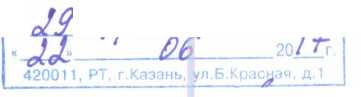 29
« 22 » 06 20 г.
420011, РТ, г.Казань, ул.Б.Красная, д.1